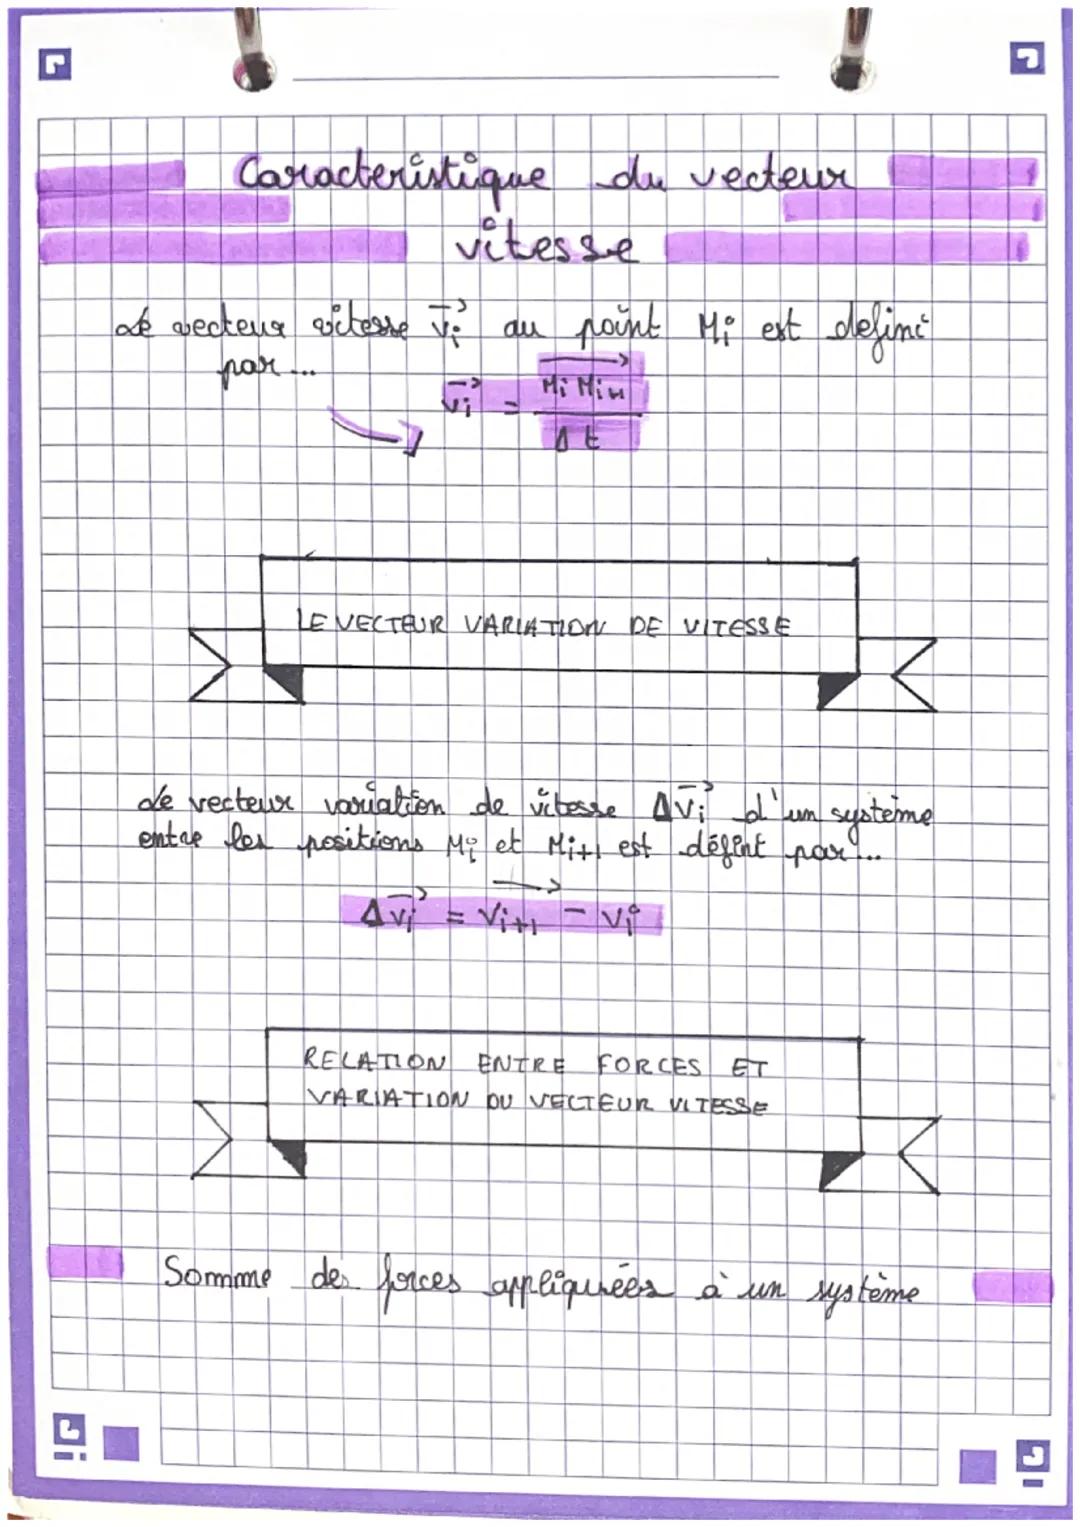 Caracteristique du vecteur
vitesse
Le vecteur vitesse v⃗i au point Mi est defini
par...
v⃗i = MiMi+1 / Δt
LE VECTEUR VARIATION DE VITESSE
Le vecteur variation de vitesse Δv⃗i d'un système
entre les positions Mi et Mi+1 est défint par...
Δv⃗i = vi+1 - vi
RELATION ENTRE FORCES ET
VARIATION DU VECTEUR VITESSE
Somme des forces appliquées à un système